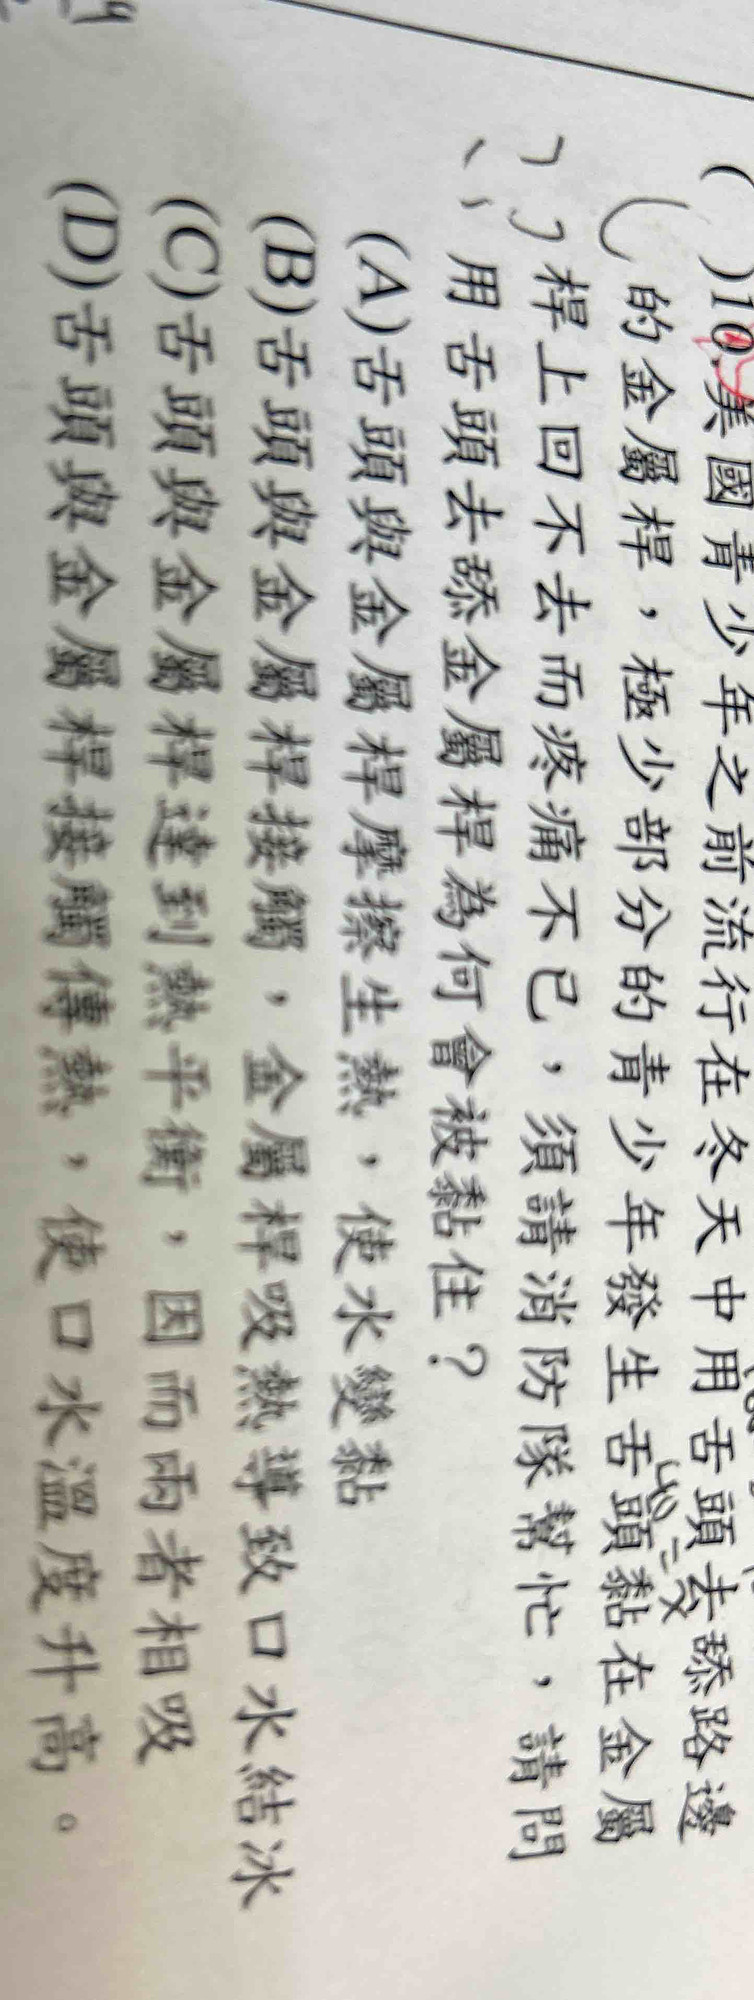 ( )10.美國青少年之前流行在冬天中用舌頭去舔路邊
的金屬桿，極少部分的青少年發生舌頭黏在金屬
桿上回不去而疼痛不已，須請消防隊幫忙，請問
用舌頭去舔金屬桿為何會被黏住？
(A)舌頭與金屬桿摩擦生熱，使水變黏
(B)舌頭與金屬桿接觸，金屬桿吸熱導致口水結冰
(C)舌頭與金屬桿達到熱平衡，因而兩者相吸
(D)舌頭與金屬桿接觸傳熱，使口水溫度升高。